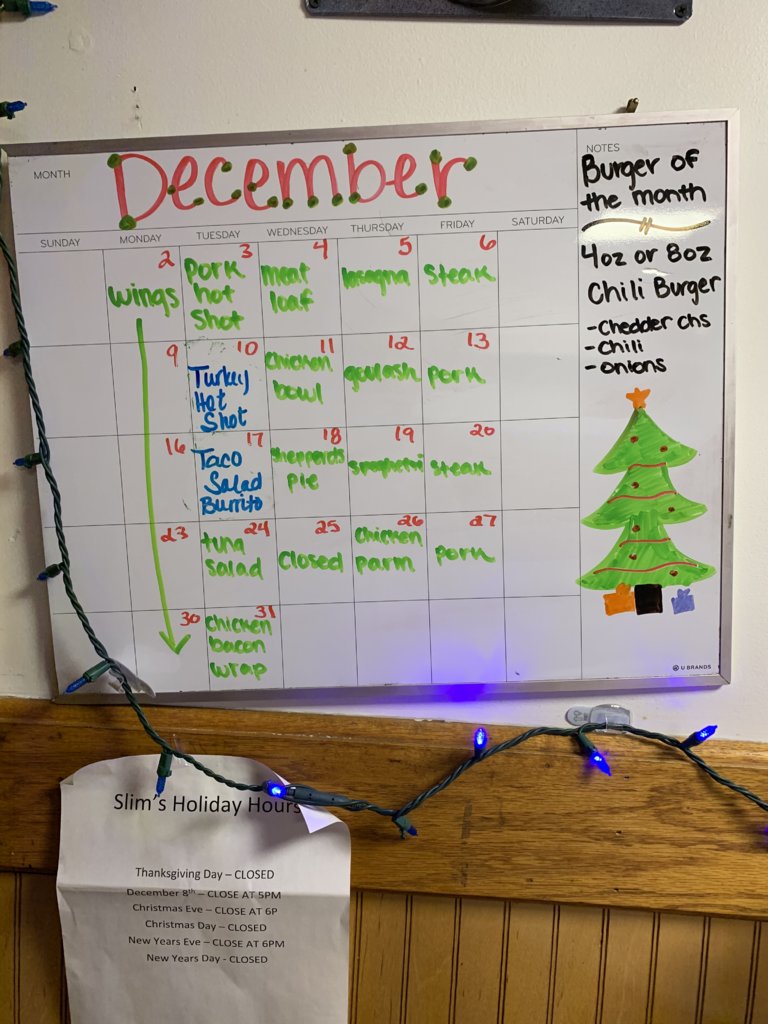 MONTH
December
SUNDAY MONDAY TUESDAY WEDNESDAY THURSDAY FRIDAY SATURDAY
2
wings
3
Pork
hot
Shot
4
meat
loaf
5
lasagna
6
Steak
9
10
Turkey
Hot
Shot
11
chicken
bowl
12
goulash
13
pork
16
17
Taco
Salad
Burrito
18
shepperds
pie
19
spaghetti
20
steak
23
24
tuna
salad
25
closed
26
chicken
parm
27
pork
30
31
chicken
bacon
wrap
NOTES
Burger of
the month
4oz or 8oz
Chili Burger
-Chedder chs
-Chili
-onions
U BRANDS
Slim's Holiday Hours
Thanksgiving Day – CLOSED
December 8th – CLOSE AT 5PM
Christmas Eve – CLOSE AT 6P
Christmas Day – CLOSED
New Years Eve – CLOSE AT 6PM
New Years Day - CLOSED